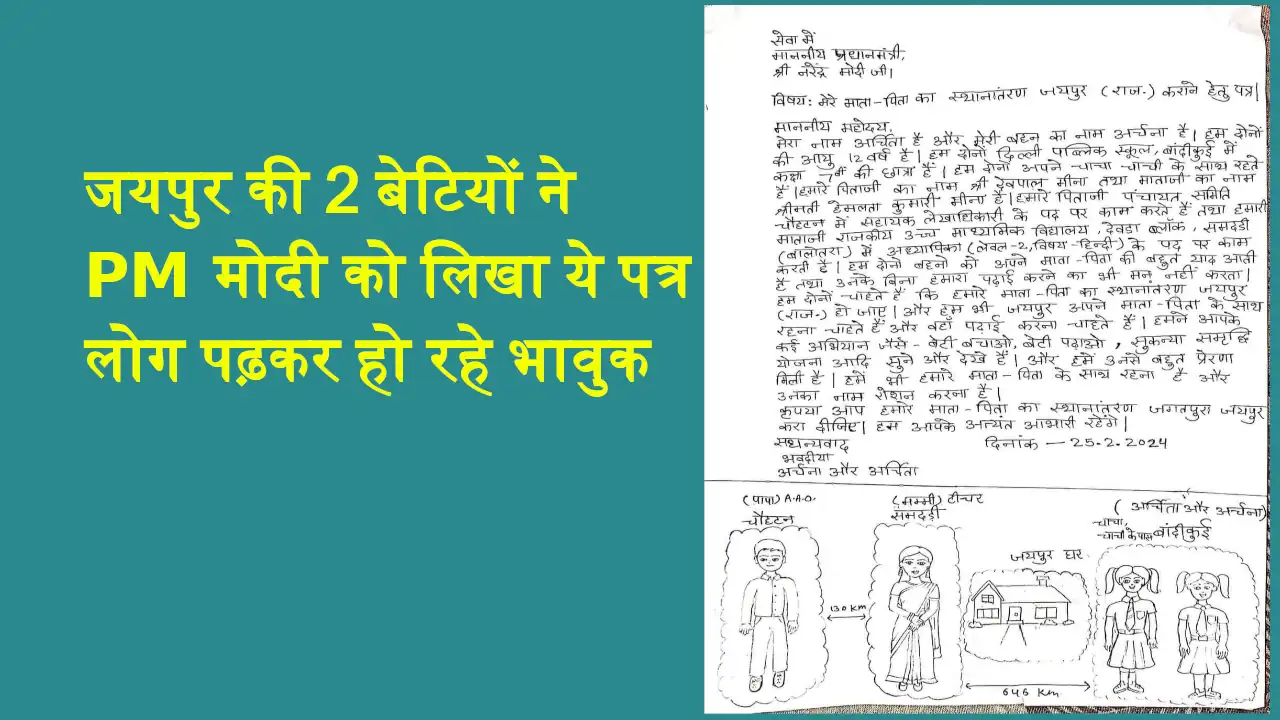 जयपुर की 2 बेटियों ने
PM मोदी को लिखा ये पत्र
लोग पढ़कर हो रहे भावुक
सेवा में
माननीय प्रधानमंत्री,
श्री नरेंद्र मोदी जी।
विषय: मेरे माता-पिता का स्थानांतरण जयपुर (राज.) कराने हेतु पत्र।
माननीय महोदय,
मेरा नाम अर्चिता है और मेरी बहन का नाम अर्चना है। हम दोनों
की आयु 12 वर्ष है। हम दोनों दिल्ली पब्लिक स्कूल, बांदीकुई में
कक्षा 7वीं की छात्रा हैं। हम दोनों अपने चाचा-चाची के साथ रहते
हैं। हमारे पिताजी का नाम श्री देवपाल मीना तथा माताजी का नाम
श्रीमती हेमलता कुमारी मीना है। हमारे पिताजी पंचायत समिति
चौहटन में सहायक लेखाधिकारी के पद पर काम करते हैं तथा हमारी
माताजी राजकीय उच्च माध्यमिक विद्यालय, देवड़ा ब्लॉक, समदड़ी
(बालोतरा) में अध्यापिका (लेवल-2, विषय-हिन्दी) के पद पर काम
करती है। हम दोनों बहनों को अपने माता-पिता की बहुत याद आती
है तथा उनके बिना हमारा पढ़ाई करने का भी मन नहीं करता।
हम दोनों चाहते हैं कि हमारे माता-पिता का स्थानांतरण जयपुर
(राज.) हो जाए। और हम भी जयपुर अपने माता-पिता के साथ
रहना चाहते हैं और वहाँ पढ़ाई करना चाहते हैं। हमने आपके
कई अभियान जैसे - बेटी बचाओ, बेटी पढ़ाओ, सुकन्या समृद्धि
योजना आदि सुने और देखे हैं। और हमें उनसे बहुत प्रेरणा
मिली है। हमें भी हमारे माता-पिता के साथ रहना है और
उनका नाम रोशन करना है।
कृपया आप हमारे माता-पिता का स्थानांतरण जगतपुरा जयपुर
करा दीजिए। हम आपके अत्यंत आभारी रहेंगे।
सधन्यवाद दिनांक - 25.2.2024
भवदीया
अर्चना और अर्चिता
(पापा) A.A.O.
चौहटन
(मम्मी) टीचर
समदड़ी
(अर्चिता और अर्चना)
चाचा,
चाची के पास बांदीकुई
जयपुर घर
130 KM
646 Km